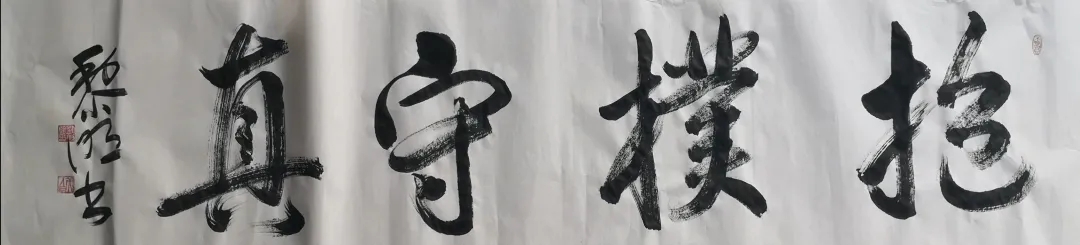 抱樸守真
黎明书